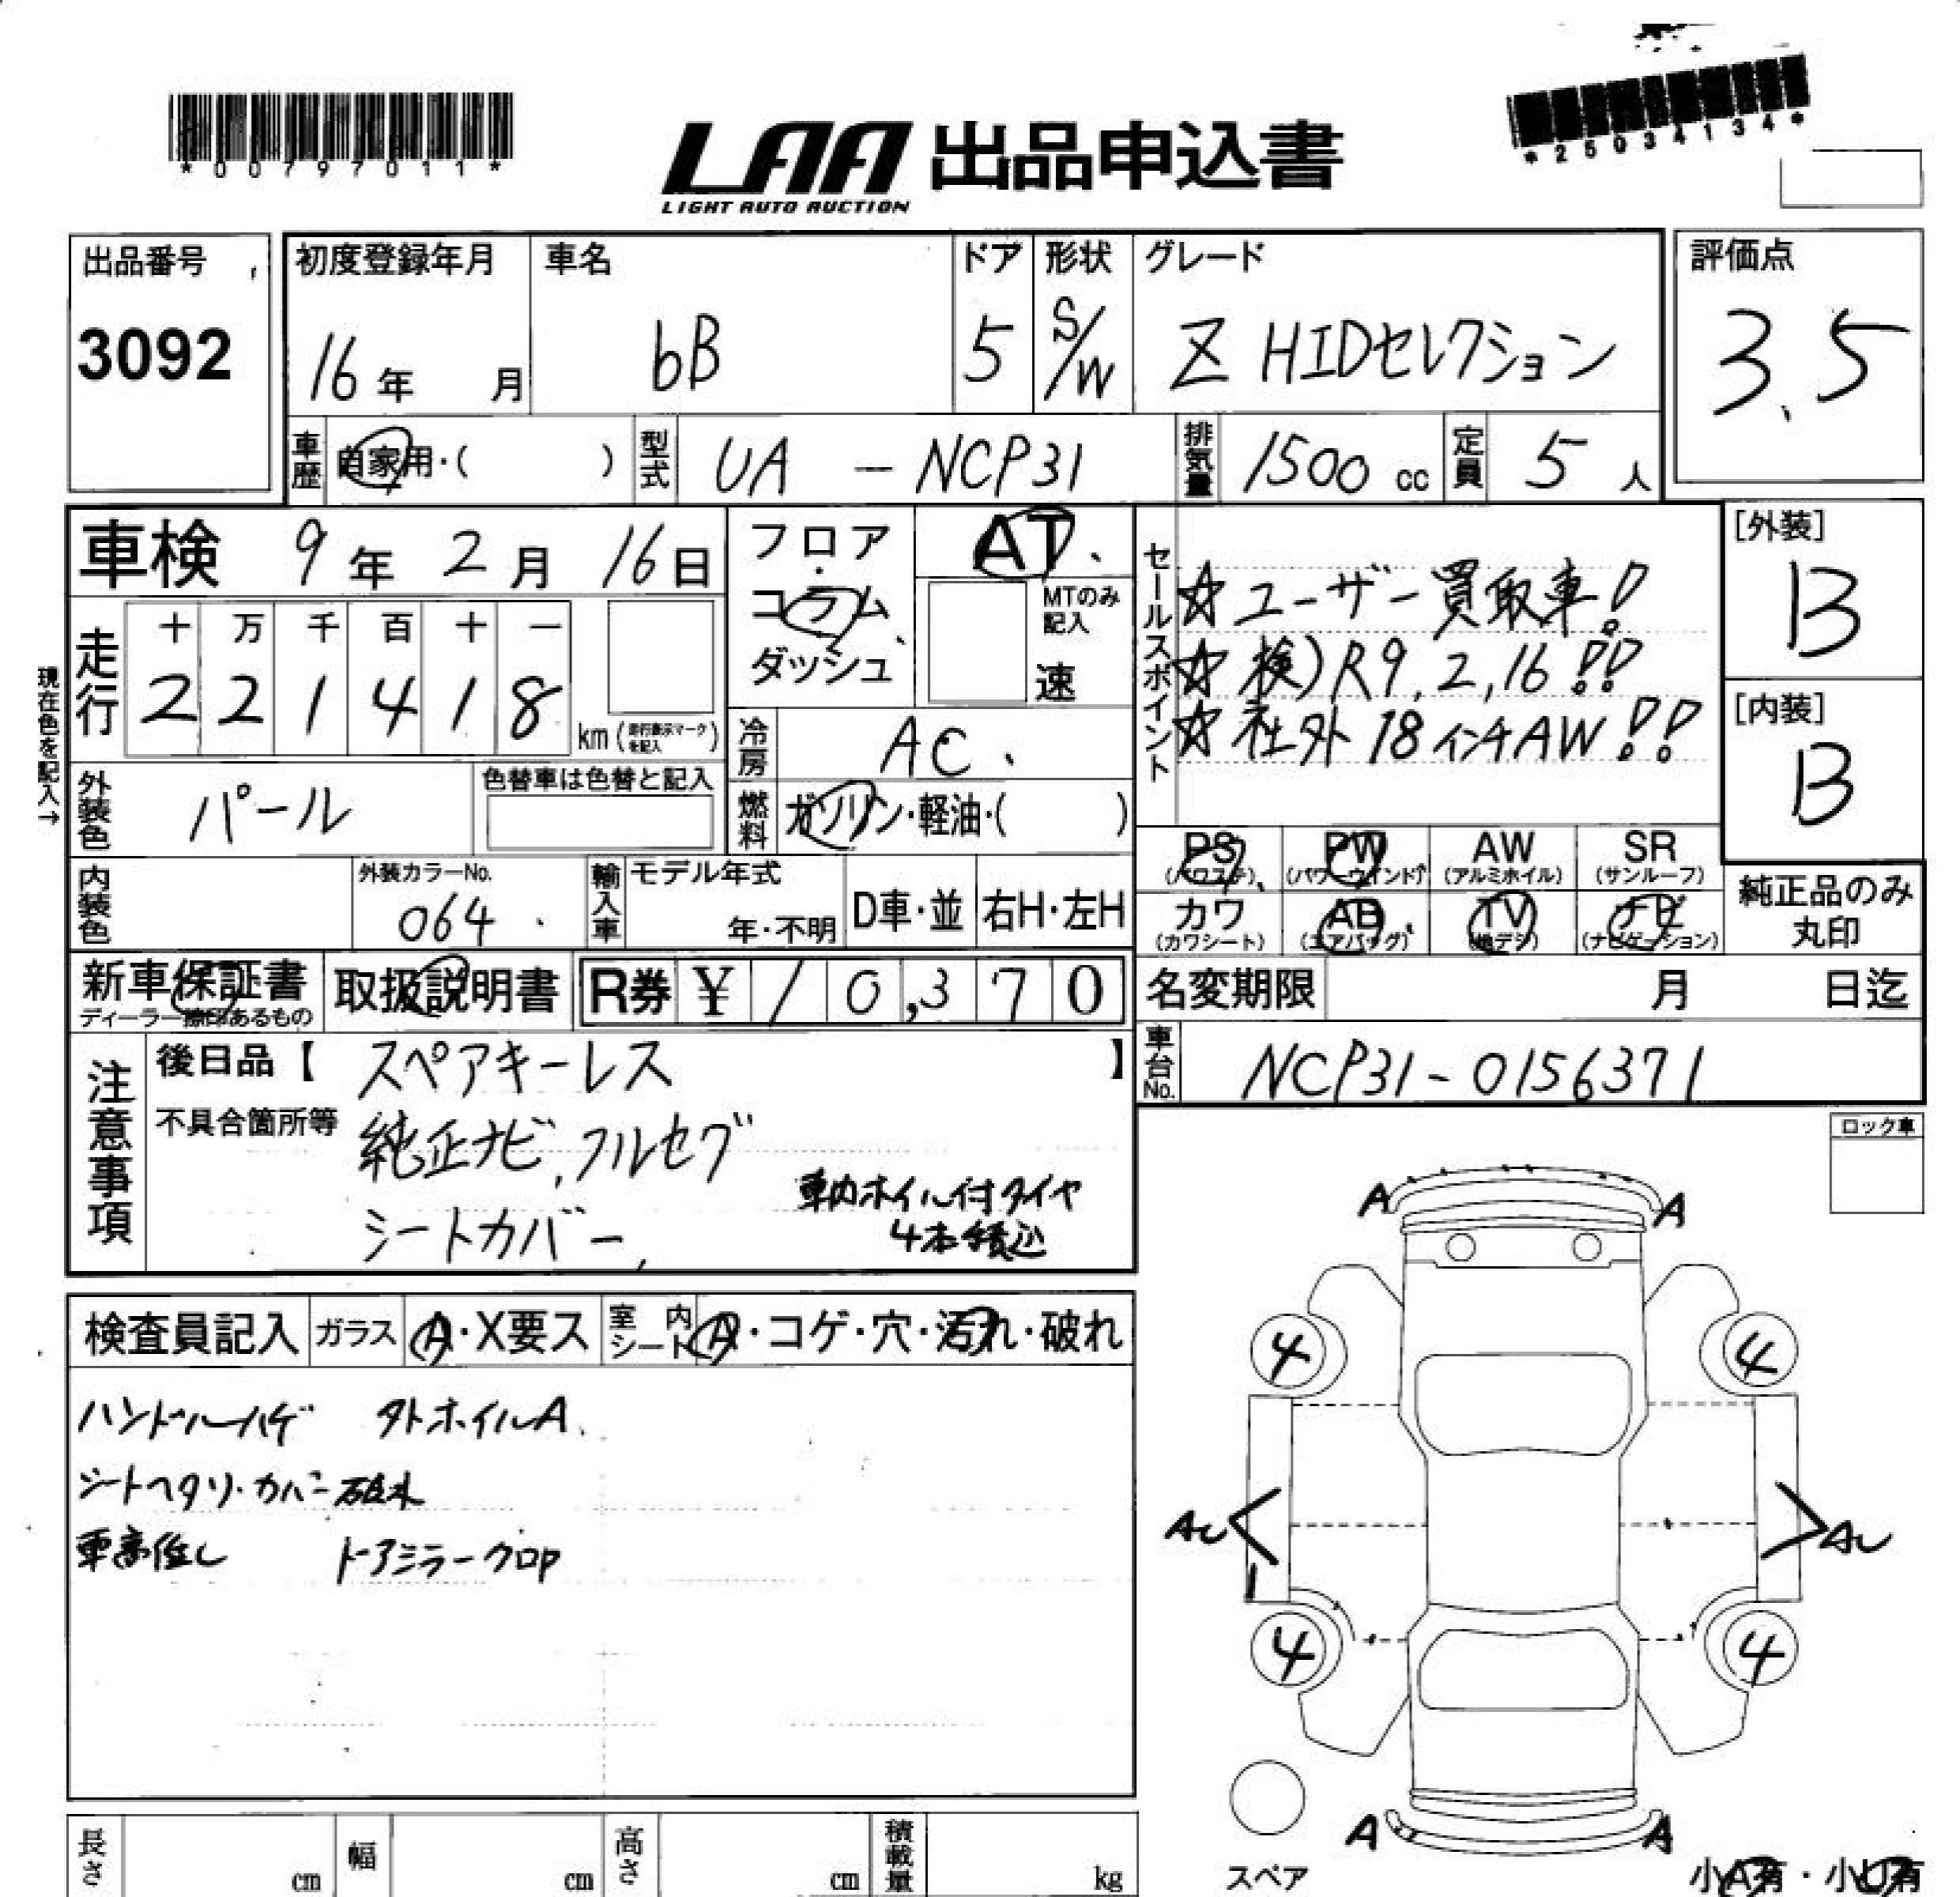 *00797011*
LAA 出品申込書
LIGHT AUTO AUCTION
*25034134*
出品番号
3092
初度登録年月
16年 月
車名
bB
ドア
5
形状
S/W
グレード
Z HIDセレクション
評価点
3.5
車歴
自家用・( )
型式
UA - NCP31
排気量
1500 cc
定員
5 人
車検 9年 2月 16日
フロア・
コラム
ダッシュ
AT
MTのみ記入
速
セールスポイント
☆ユーザー買取車!
☆検)R9,2,16!!
☆社外18インチAW!!
[外装]
B
[内装]
B
現在色を記入→
走行
十 万 千 百 十 一
2 2 1 4 1 8
km(走行表示マークを記入)
冷房
AC.
外装色
パール
色替車は色替と記入
燃料
ガソリン・軽油・( )
PS
(パワステ)
PW
(パワーウインドウ)
AW
(アルミホイル)
SR
(サンルーフ)
カワ
(カワシート)
AB
(エアバッグ)
TV
(地デジ)
ナビ
(ナビゲーション)
純正品のみ
丸印
内装色
外装カラーNo.
064
輸入車
モデル年式
年・不明
D車・並
右H・左H
新車保証書
ディーラー捺印あるもの
取扱説明書
R券 ¥ 10,370
名変期限 月 日迄
車台No.
NCP31-0156371
注意事項
後日品【 スペアキーレス 】
不具合箇所等
純正ナビ,フルセグ
シートカバー
車内ホイル付タイヤ
4本積込
ロック車
検査員記入
ガラス
A・X要ス
室内
シート
A・コゲ・穴・汚れ・破れ
ハンドルハゲ 外ホイルA.
シートヘタリ・カバー破れ
車高低し ドアミラークロP
A A
4 4
AU AU
4 4
A A
スペア
小A有・小U有
長さ cm
幅 cm
高さ cm
積載量 kg